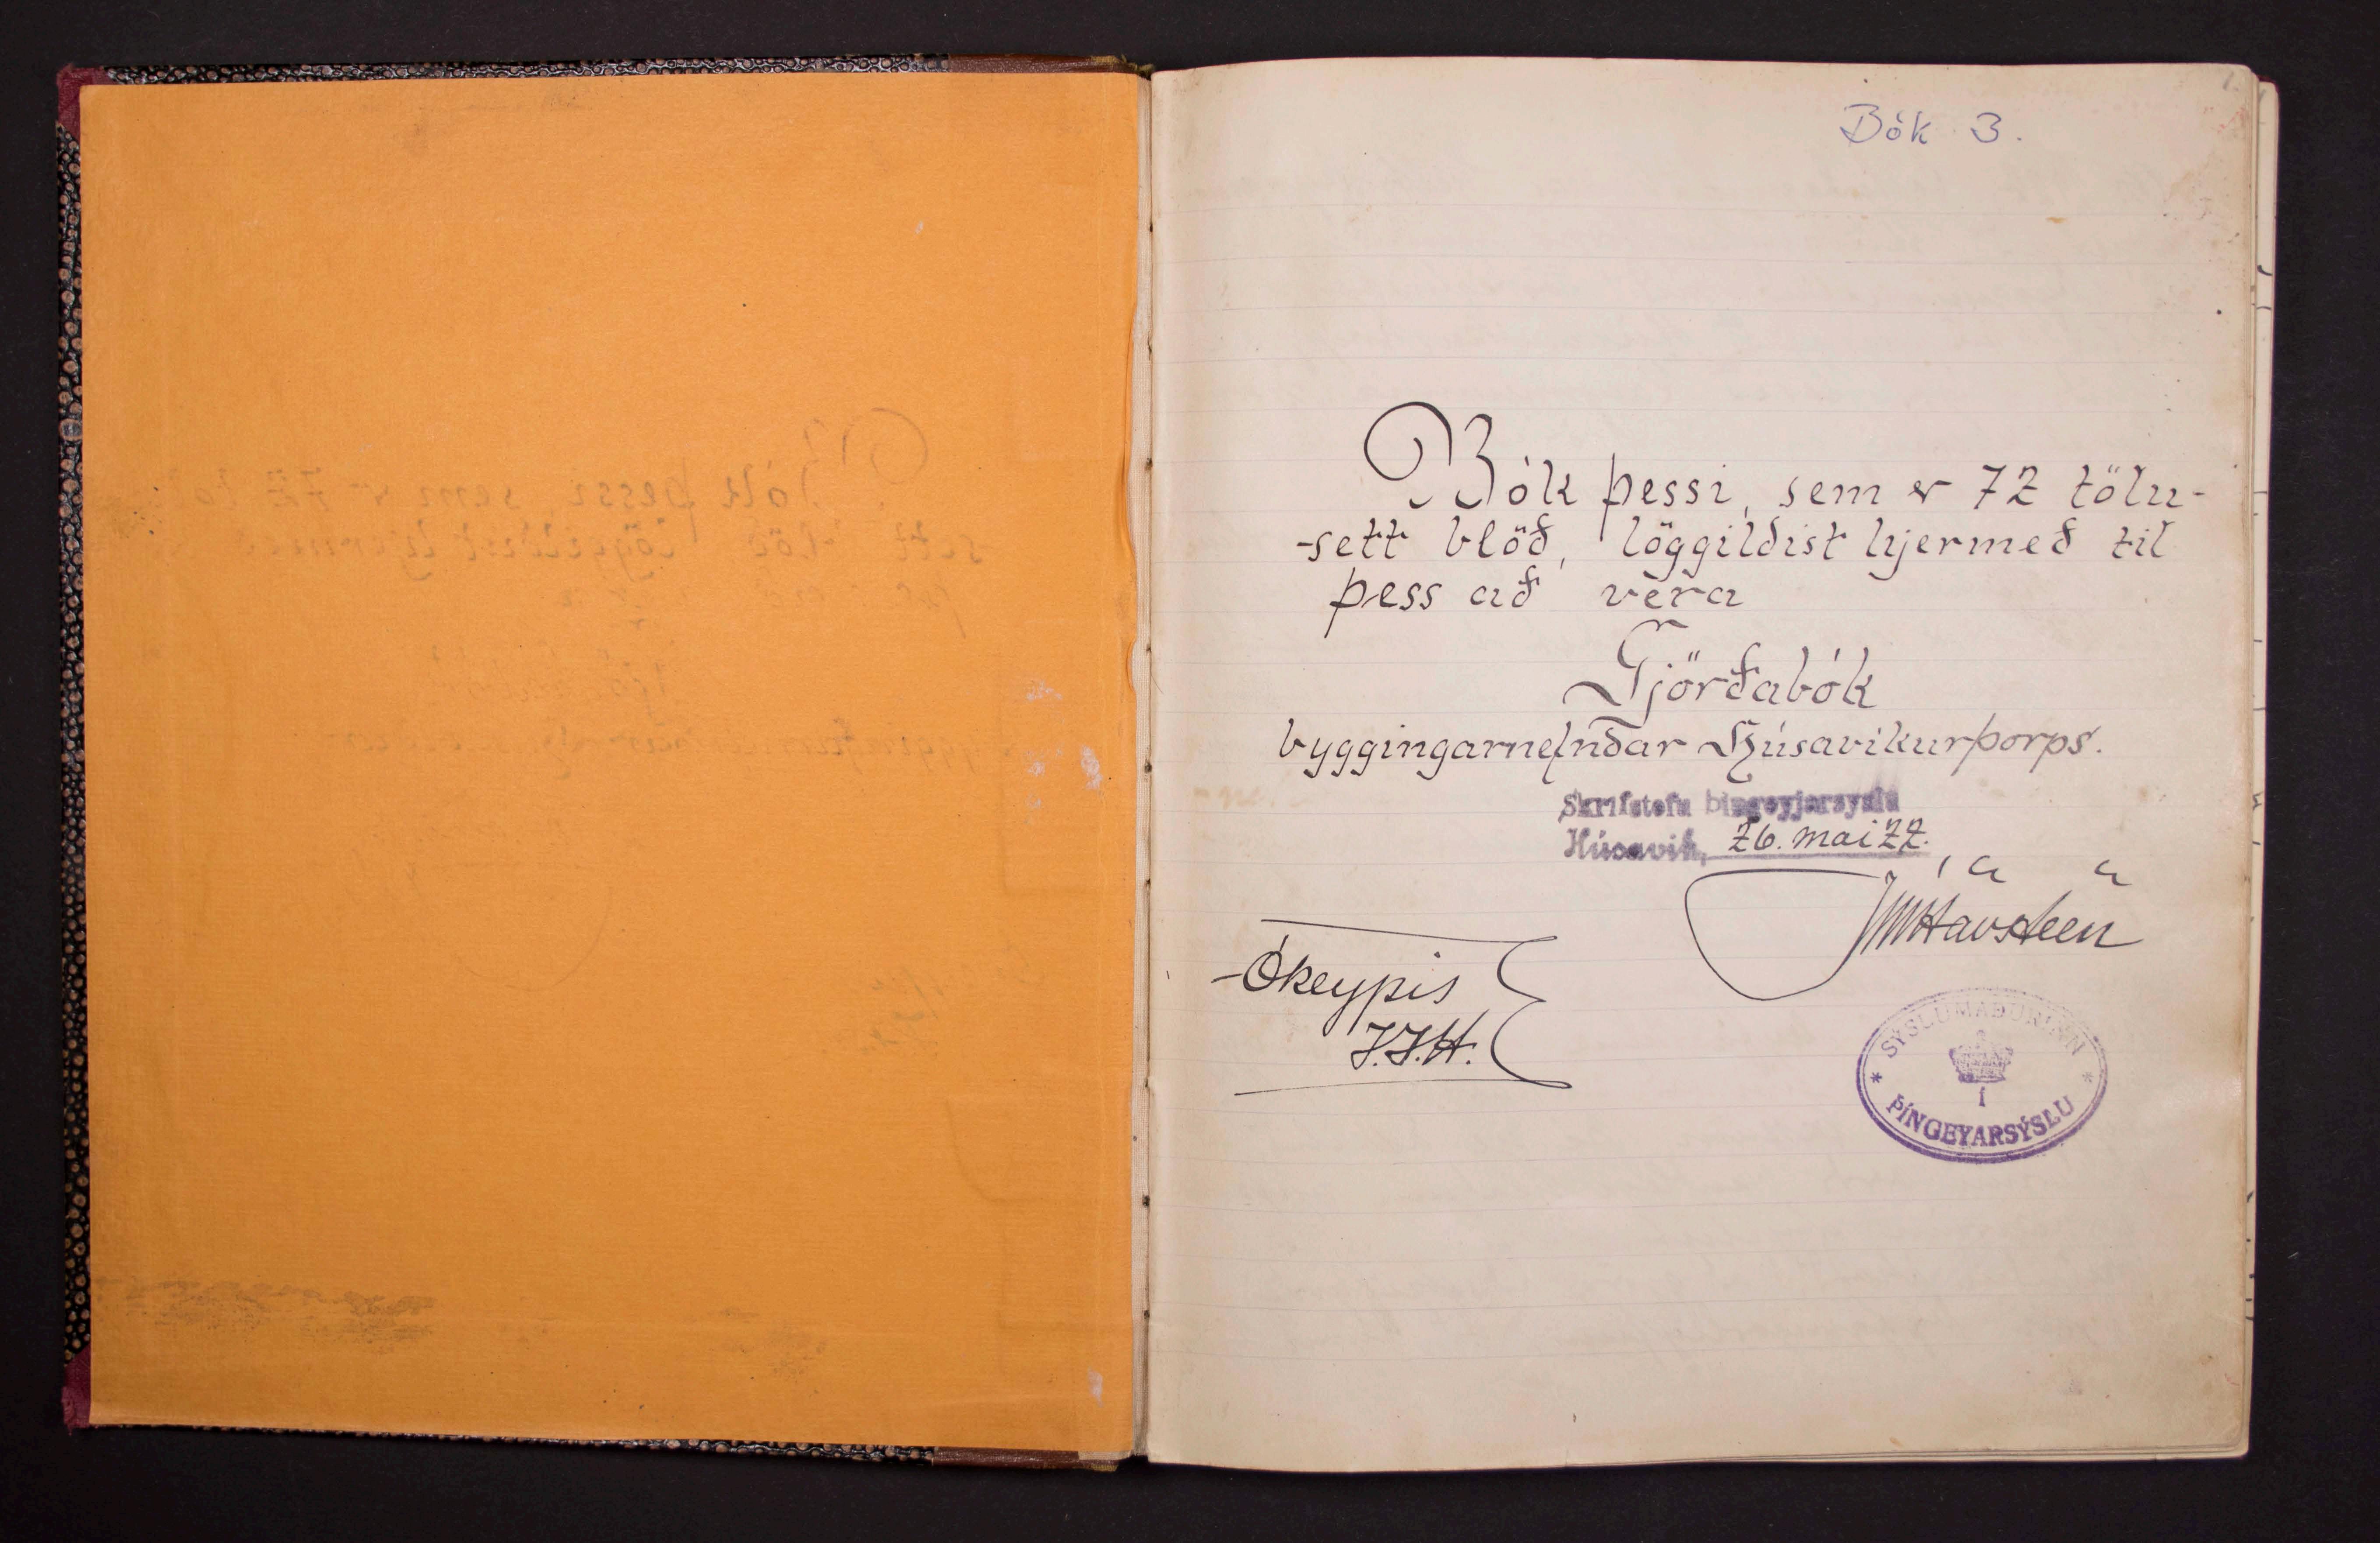 Bók 3.
Bók þessi, sem er 72 tölu-
-sett blöð, löggildist hjermeð til
þess að vera
Gjörðabók
byggingarnefndar Húsavíkurþorps.
Skrifstofu Þingeyjarsýslu
Húsavík, 26. mai 22.
JúlHavsteen
Ókeypis
J.J.H.
SÝSLUMAÐURINN
Í
ÞINGEYARSÝSLU